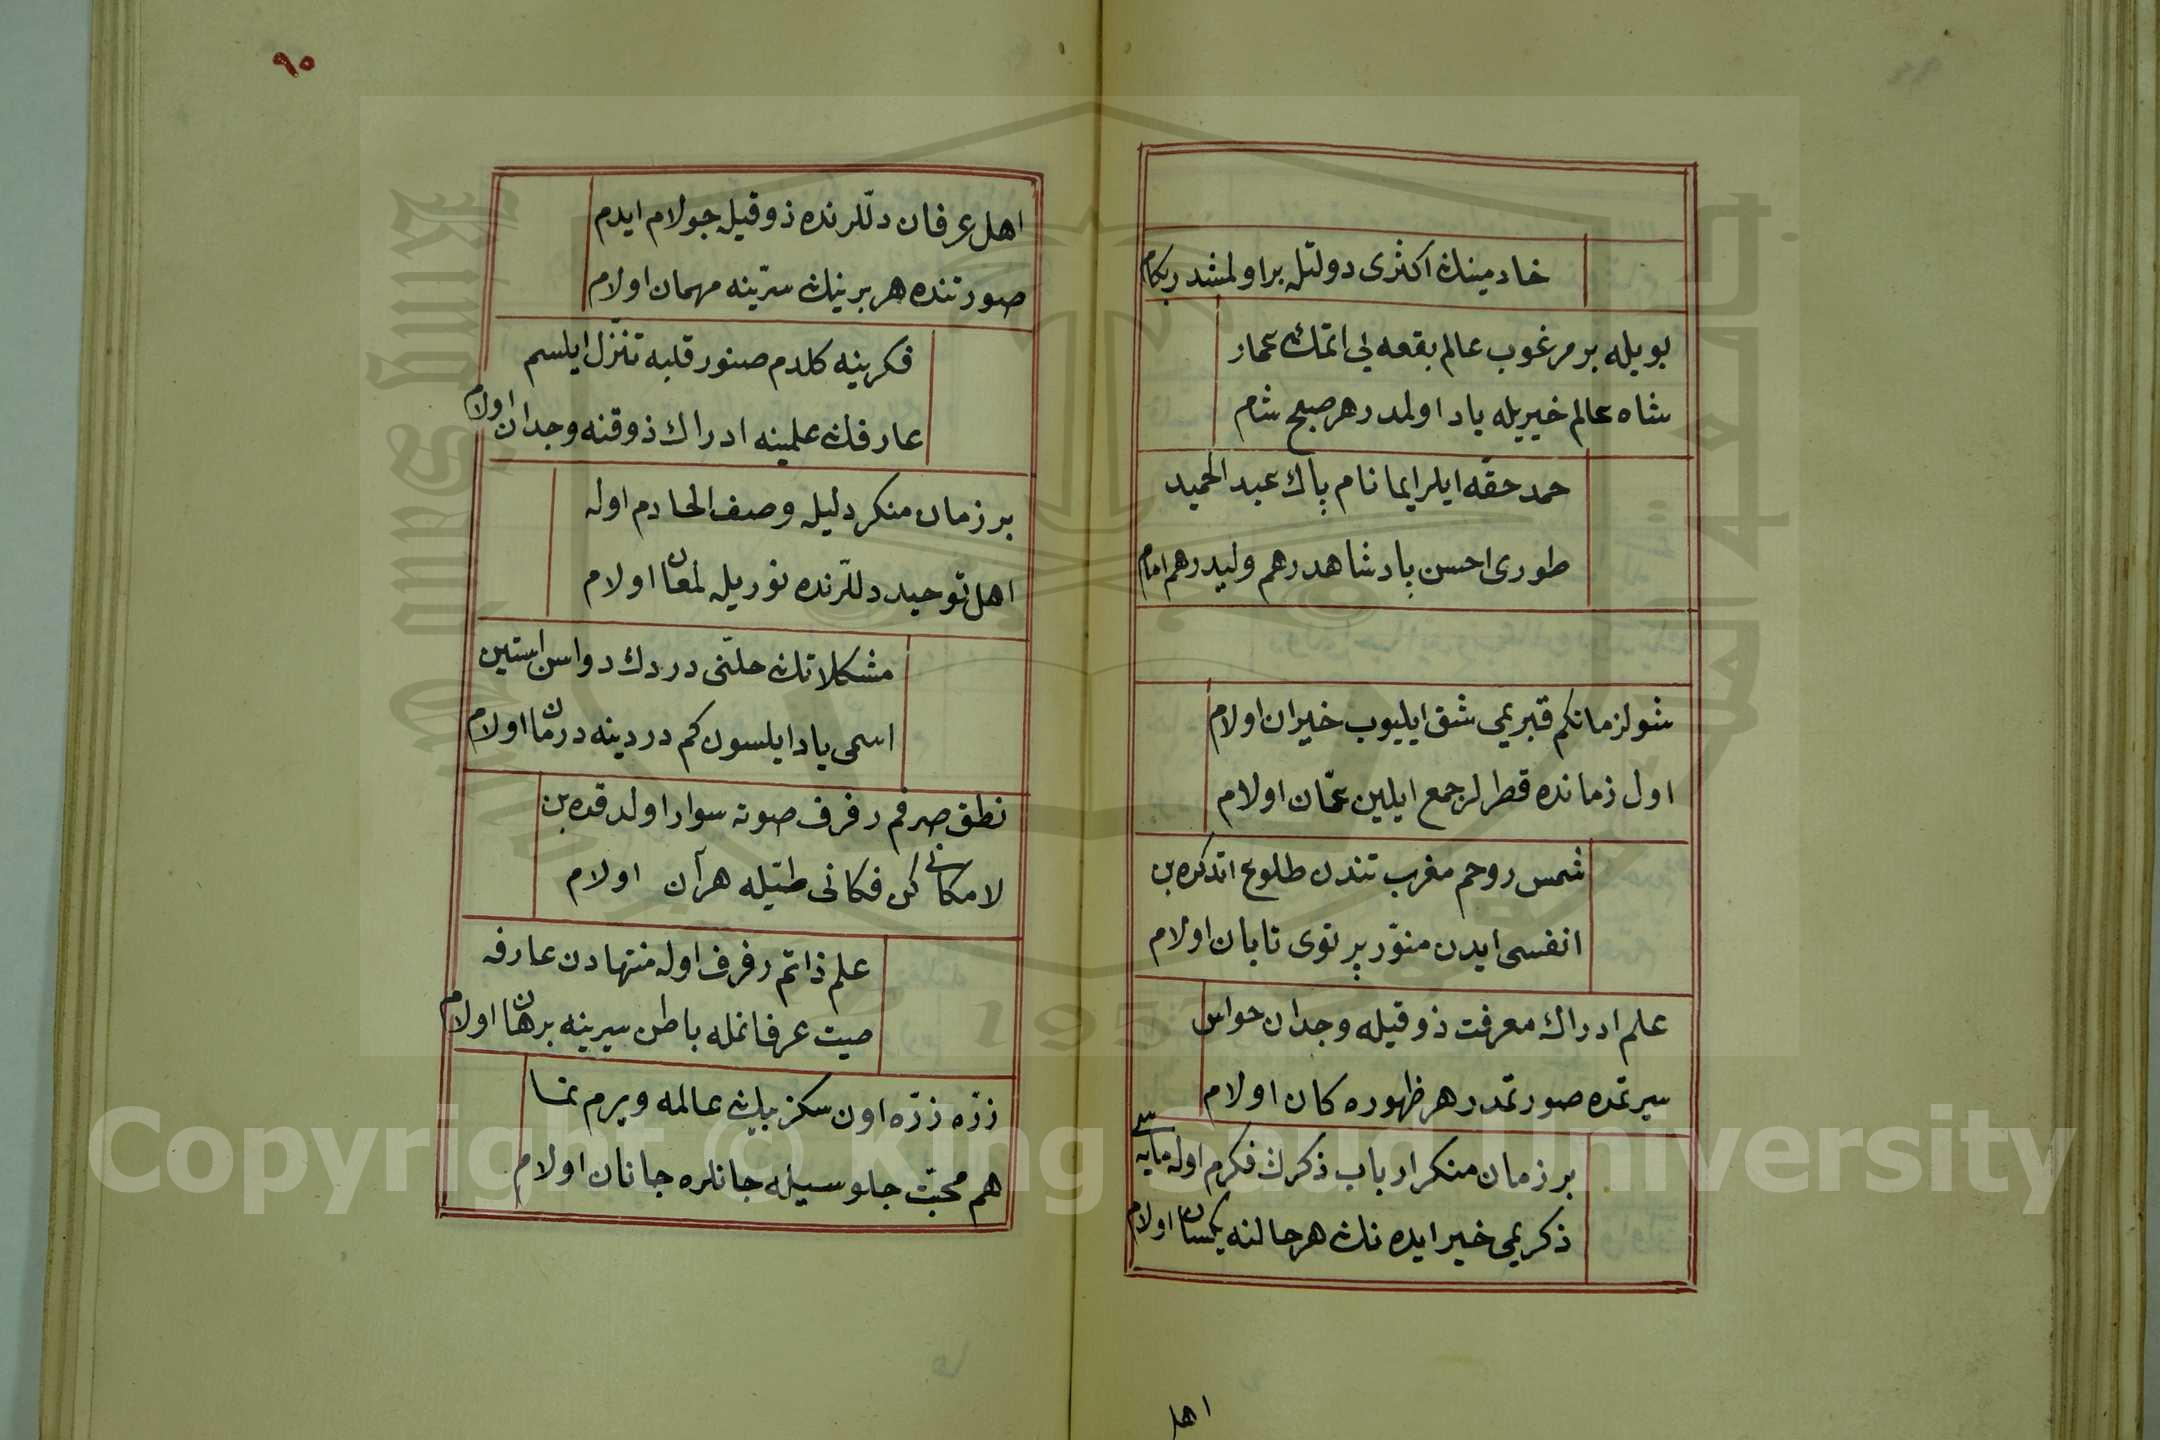 خادمینك اكثری دولتله بر اولمشدر بكام
بویله بر مرغوب عالم بقعه لی اتمك عمار
شاه عالم خیریله یاد اولمدر هر صبح شام
حمد حقه ایلر ایما نام پاك عبد الحمید
طوری احسن پادشاهدر هم ولیدر هم امام
شولزمانكم قبریمی شق ایلیوب خیران اولام
اول زمانده قطرلر جمع ایلین عمّان اولام
شمس روحم مغرب تندن طلوع اتدكره بن
انفسی ایدن منوّر پرتوی تابان اولام
علم ادراك معرفت ذوقیله وجدان حواس
سیرتمده صورتمدر هر ظهوره كان اولام
بر زمان منكر ارباب ذكرك فكرم اوله مایه سی
ذكریمی خیر ایده نك هر حالنه یكسان اولام
اهل
٩٥
اهل عرفان دللرنده ذوقیله جولام ایدم
صورتنده هر برینك سرّینه مهمان اولام
فكرینه كلدم صنور قلبه تنزّل ایلسم
عارفك علمینه ادراك ذوقنه وجدان اولام
بر زمان منكر دلیله وصف الحادم اوله
اهل توحید دللرنده نوریله لمعان اولام
مشكلاتك حلنی دردك دواسن استین
اسمی یاد ایلسون كم دردینه درمان اولام
نطق صرفم رفرف صوته سوار اولدقده بن
لامكانی كن فكانی طیّله هر آن اولام
علم ذاتم رفرف اوله منتهادن عارفه
صیت عرفانمله باطن سیرینه برهان اولام
ذرّه ذرّه اون سكز بیك عالمه ویرم نما
هم محبّت جلوسیله جانلره جانان اولام
King Saud University
1957
Copyright © King Saud University